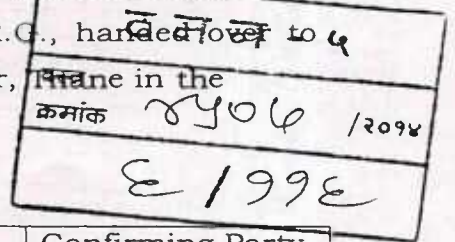 .G., handed over to ५
r, Thane in the
दस्त
क्रमांक ४५०७ /२०१४
६ / ११६
Confirming Party